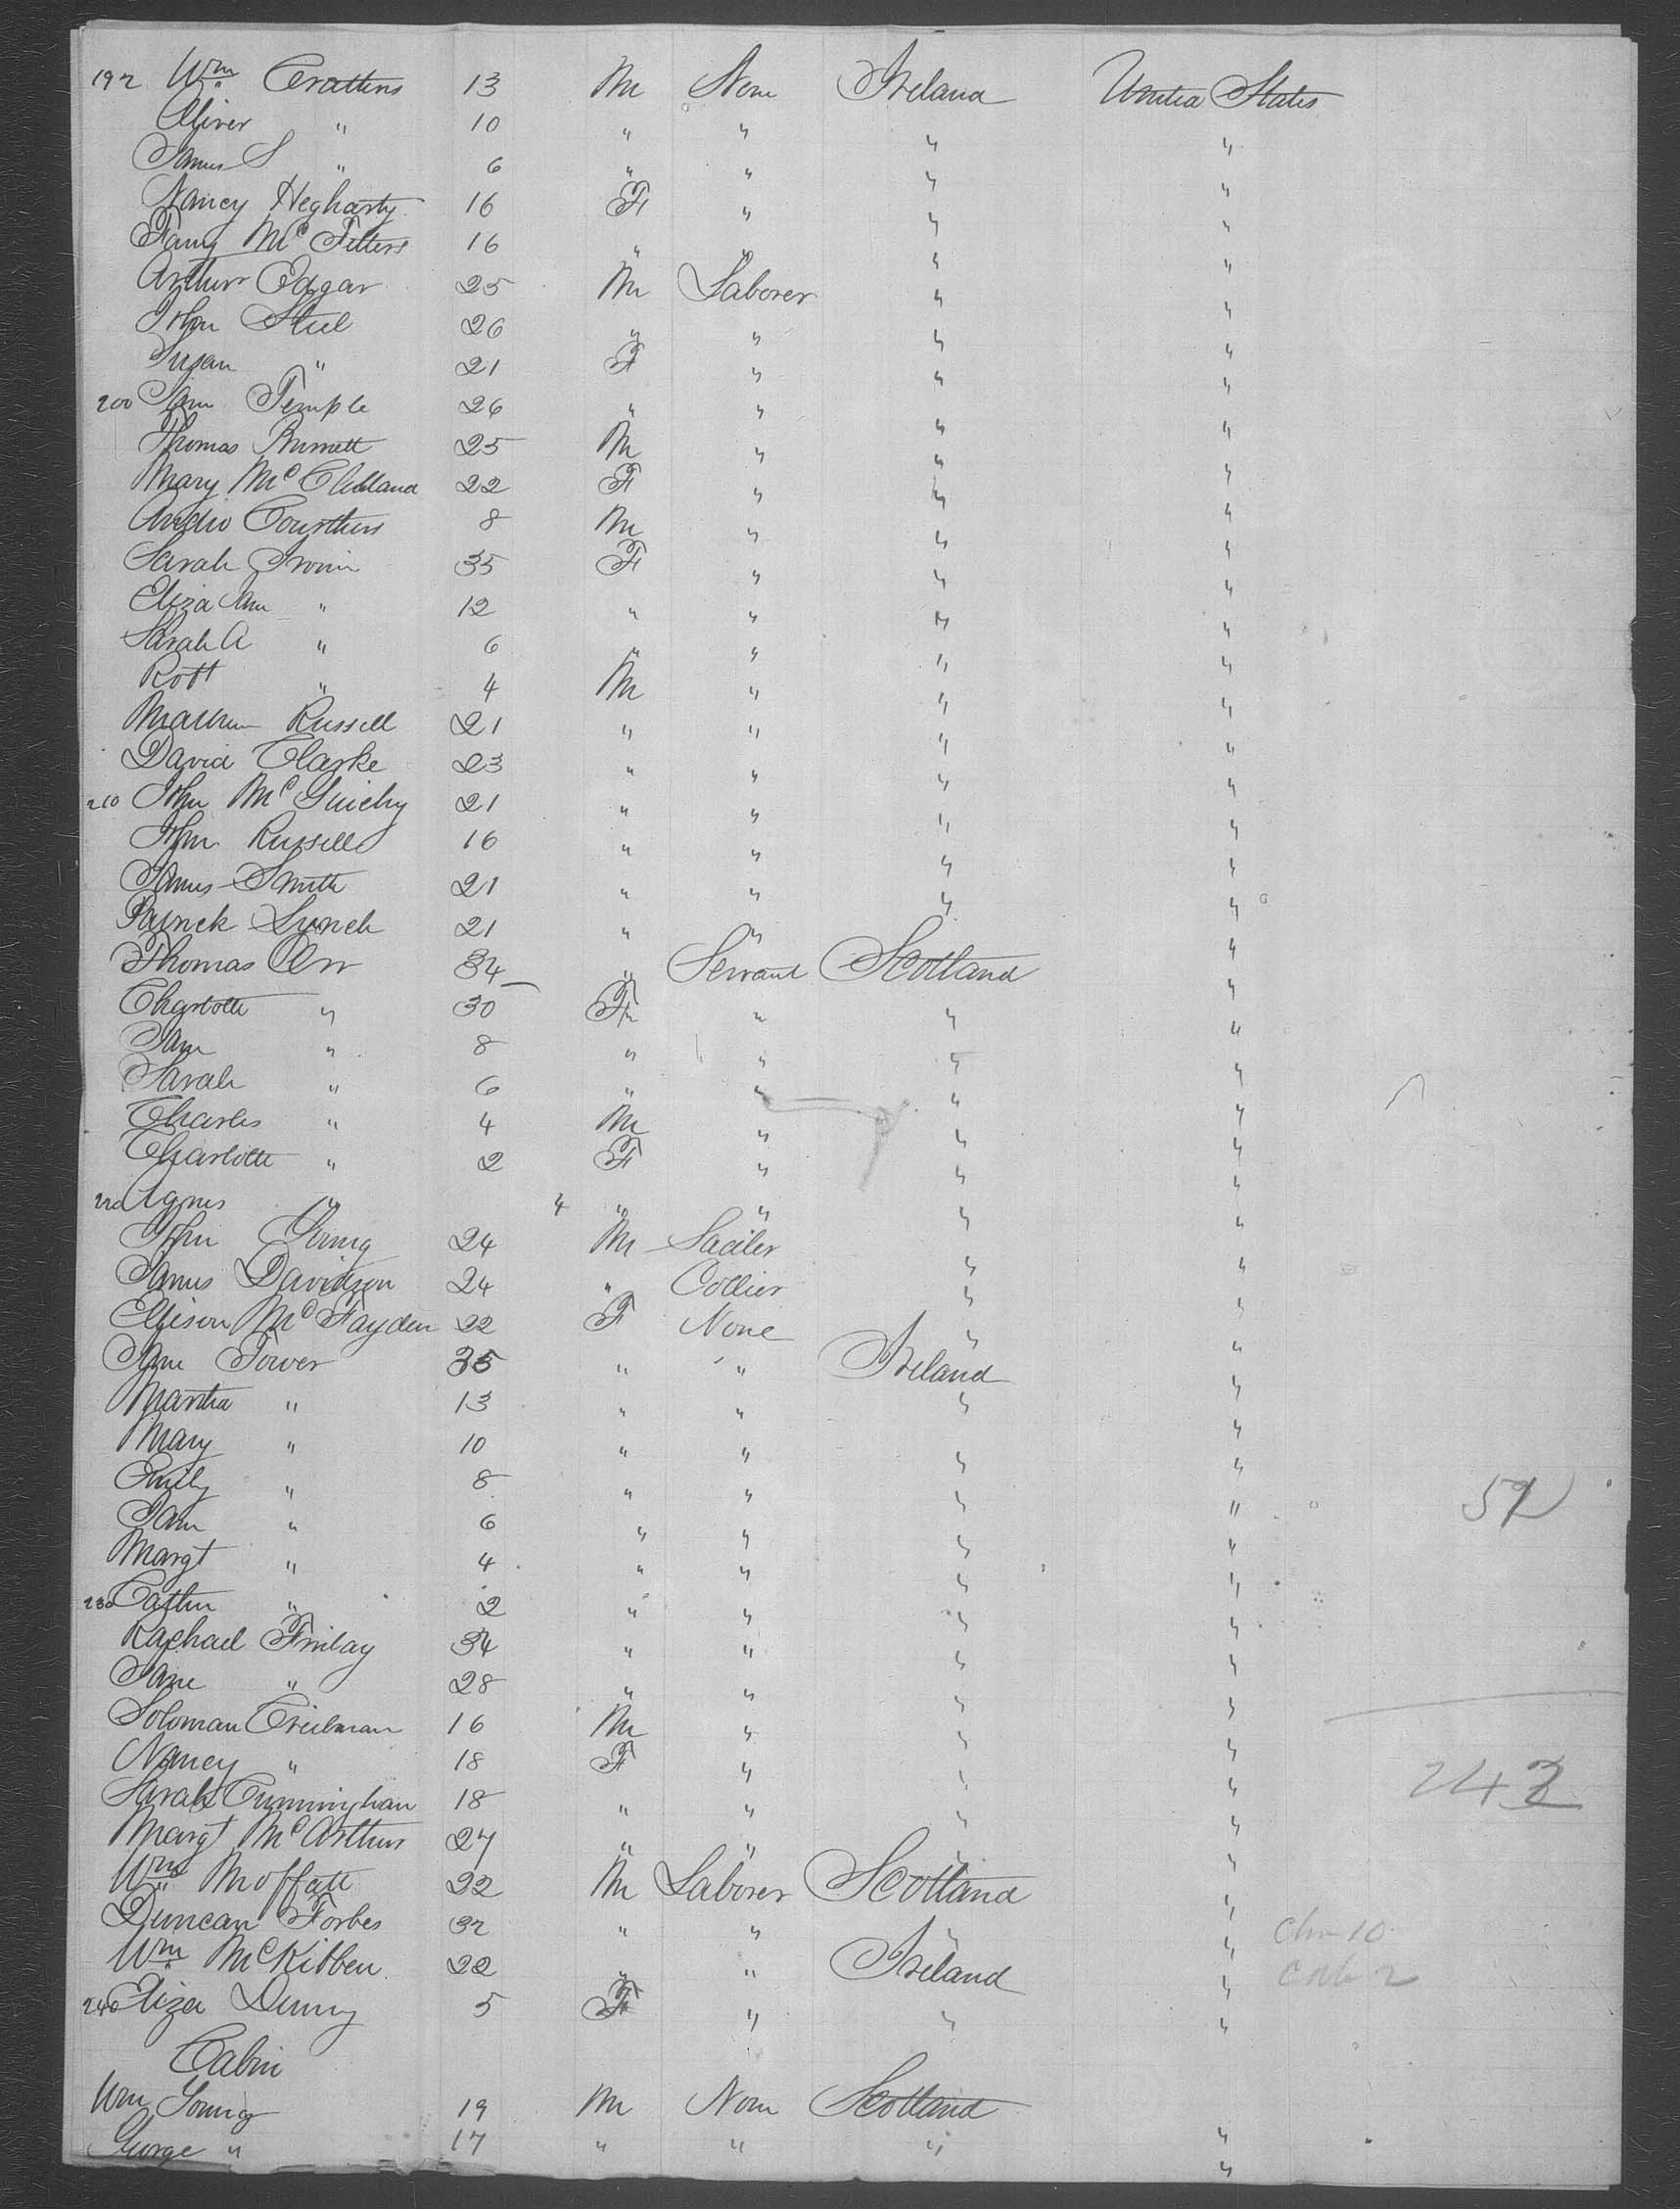 192 Wm Crattens 13 M None Ireland United States
Oliver " 10 " " " "
James S " 6 " " " "
Nancy Hegharty 16 F " " "
Fanny McFetters 16 " " " "
Arthur Edgar 25 M Laborer " "
John Steel 26 " " " "
Susan " 21 F " " "
200 Jane Temple 26 " " " "
Thomas Burnett 25 M " " "
Mary McClelland 22 F " " "
8 M " " "
Sarah Irwin 35 F " " "
Eliza Jane " 12 " " " "
Sarah A " 6 " " " "
Robt " 4 M " " "
Matthew Russell 21 " " " "
David Clarke 23 " " " "
210 John Mc 21 " " " "
John Russell 16 " " " "
James Smith 21 " " " "
Patrick Lynch 21 " " " "
Thomas Orr 34 " Servant Scotland "
Charlotte " 30 F " " "
Jane " 8 " " " "
Sarah " 6 " " " "
Charles " 4 M " " "
Charlotte " 2 F " " "
220 Agnes " 4 " " " "
John Young 24 M Sailer " "
James Davidson 24 " Collier " "
Ellison McFayden 22 F None " "
Jane Tower 35 " " Ireland "
Martha " 13 " " " "
Mary " 10 " " " "
Emily " 8 " " " "
Jane " 6 " " " "
Margt " 4 " " " "
230 Cathn " 2 " " " "
Rachael Finlay 34 " " " "
Jane " 28 " " " "
Soloman Creelman 16 M " " "
Nancy " 18 F " " "
Sarah Cunningham 18 " " " "
243
Margt McArthur 27 " " " "
Wm Moffatt 22 M Laborer Scotland "
Duncan Forbes 32 " " " "
Wm McKibben 22 " " Ireland "
240 Eliza Denny 5 F " " "
Cabin
Wm Young 19 M None Scotland "
George " 17 " " " "